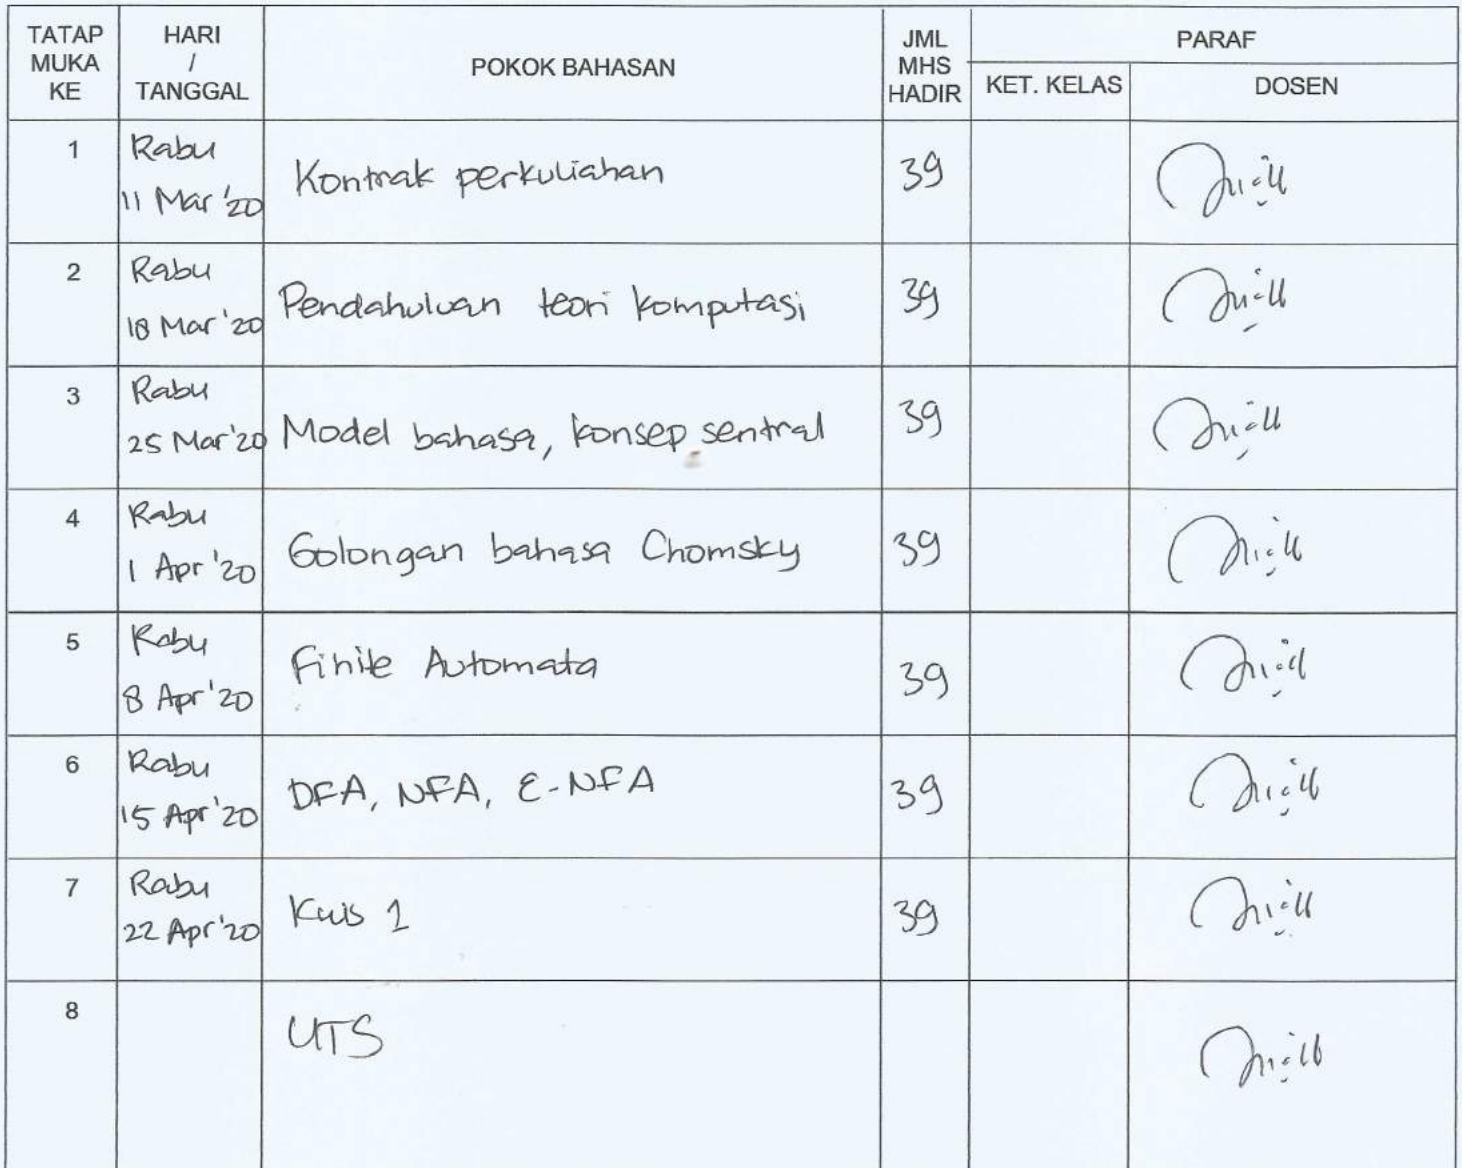 TATAP MUKA KE
HARI / TANGGAL
POKOK BAHASAN
JML MHS HADIR
PARAF
KET. KELAS
DOSEN
1
Rabu
11 Mar '20
Kontrak perkuliahan
39
2
Rabu
18 Mar '20
Pendahuluan teori komputasi
39
3
Rabu
25 Mar '20
Model bahasa, konsep sentral
39
4
Rabu
1 Apr '20
Golongan bahasa Chomsky
39
5
Rabu
8 Apr '20
Finite Automata
39
6
Rabu
15 Apr '20
DFA, NFA, ε-NFA
39
7
Rabu
22 Apr '20
Kuis 1
39
8
UTS